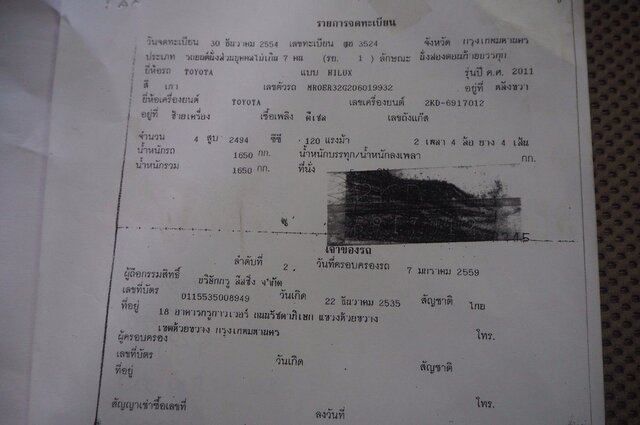 รายการจดทะเบียน
วันจดทะเบียน 30 ธันวาคม 2554 เลขทะเบียน 3524 จังหวัด กรุงเทพมหานคร
ประเภท รถยนต์นั่งส่วนบุคคลไม่เกิน 7 คน (รย. 1 ) ลักษณะ นั่งสองตอนท้ายบรรทุก
ยี่ห้อรถ TOYOTA แบบ HILUX รุ่นปี ค.ศ. 2011
สี เทา เลขตัวรถ MROER32G206019932 อยู่ที่
ยี่ห้อเครื่องยนต์ TOYOTA เลขเครื่องยนต์ 2KD-6917012
อยู่ที่ ซ้ายเครื่อง เชื้อเพลิง ดีเซล เลขถังแก๊ส
จำนวน 4 สูบ 2494 ซีซี 120 แรงม้า 2 เพลา 4 ล้อ ยาง 4 เส้น
น้ำหนักรถ 1650 กก. น้ำหนักบรรทุก/น้ำหนักลงเพลา กก.
น้ำหนักรวม 1650 กก. ที่นั่ง
เจ้าของรถ
ลำดับที่ 2 วันที่ครอบครองรถ 7 มกราคม 2559
ผู้ถือกรรมสิทธิ์ ลีสซิ่ง จำกัด
เลขที่บัตร 0115535008949 วันเกิด 22 ธันวาคม 2535 สัญชาติ ไทย
ที่อยู่ 18 ถนนรัชดาภิเษก แขวงห้วยขวาง
เขตห้วยขวาง กรุงเทพมหานคร
ผู้ครอบครอง โทร.
เลขที่บัตร วันเกิด สัญชาติ
ที่อยู่
โทร.
สัญญาเช่าซื้อเลขที่ ลงวันที่